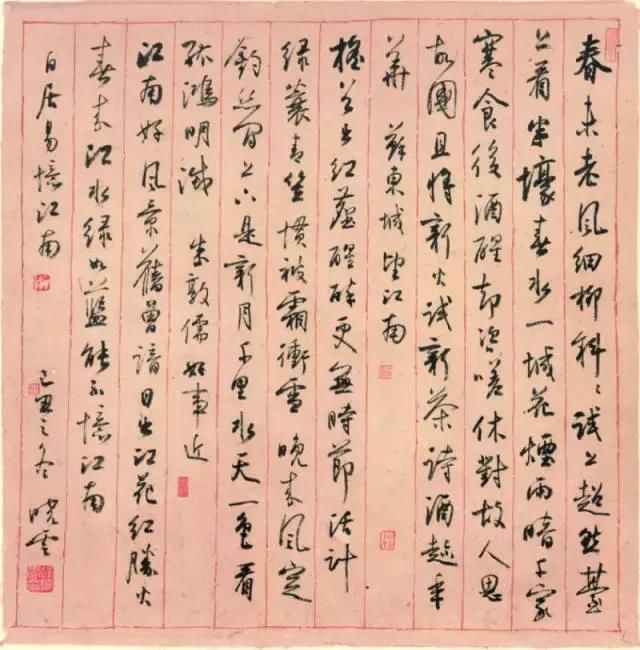 春未老風細柳斜〻試上超然臺
上看半壕春水一城花煙雨暗千家
寒食後酒醒却咨嗟休對故人思
故國且將新火試新茶詩酒趁年
華 蘇東城望江南
搖首出紅塵醒醉更無時節活計
绿蓑青笠慣被霜衝雪 晚来風定
釣絲閒上下是新月千里水天一色看
孤鴻明滅 朱敦儒好事近
江南好風景舊曾諳日出江花紅勝火
春来江水绿如藍能不憶江南
白居易憶江南 己丑之冬 曉雲